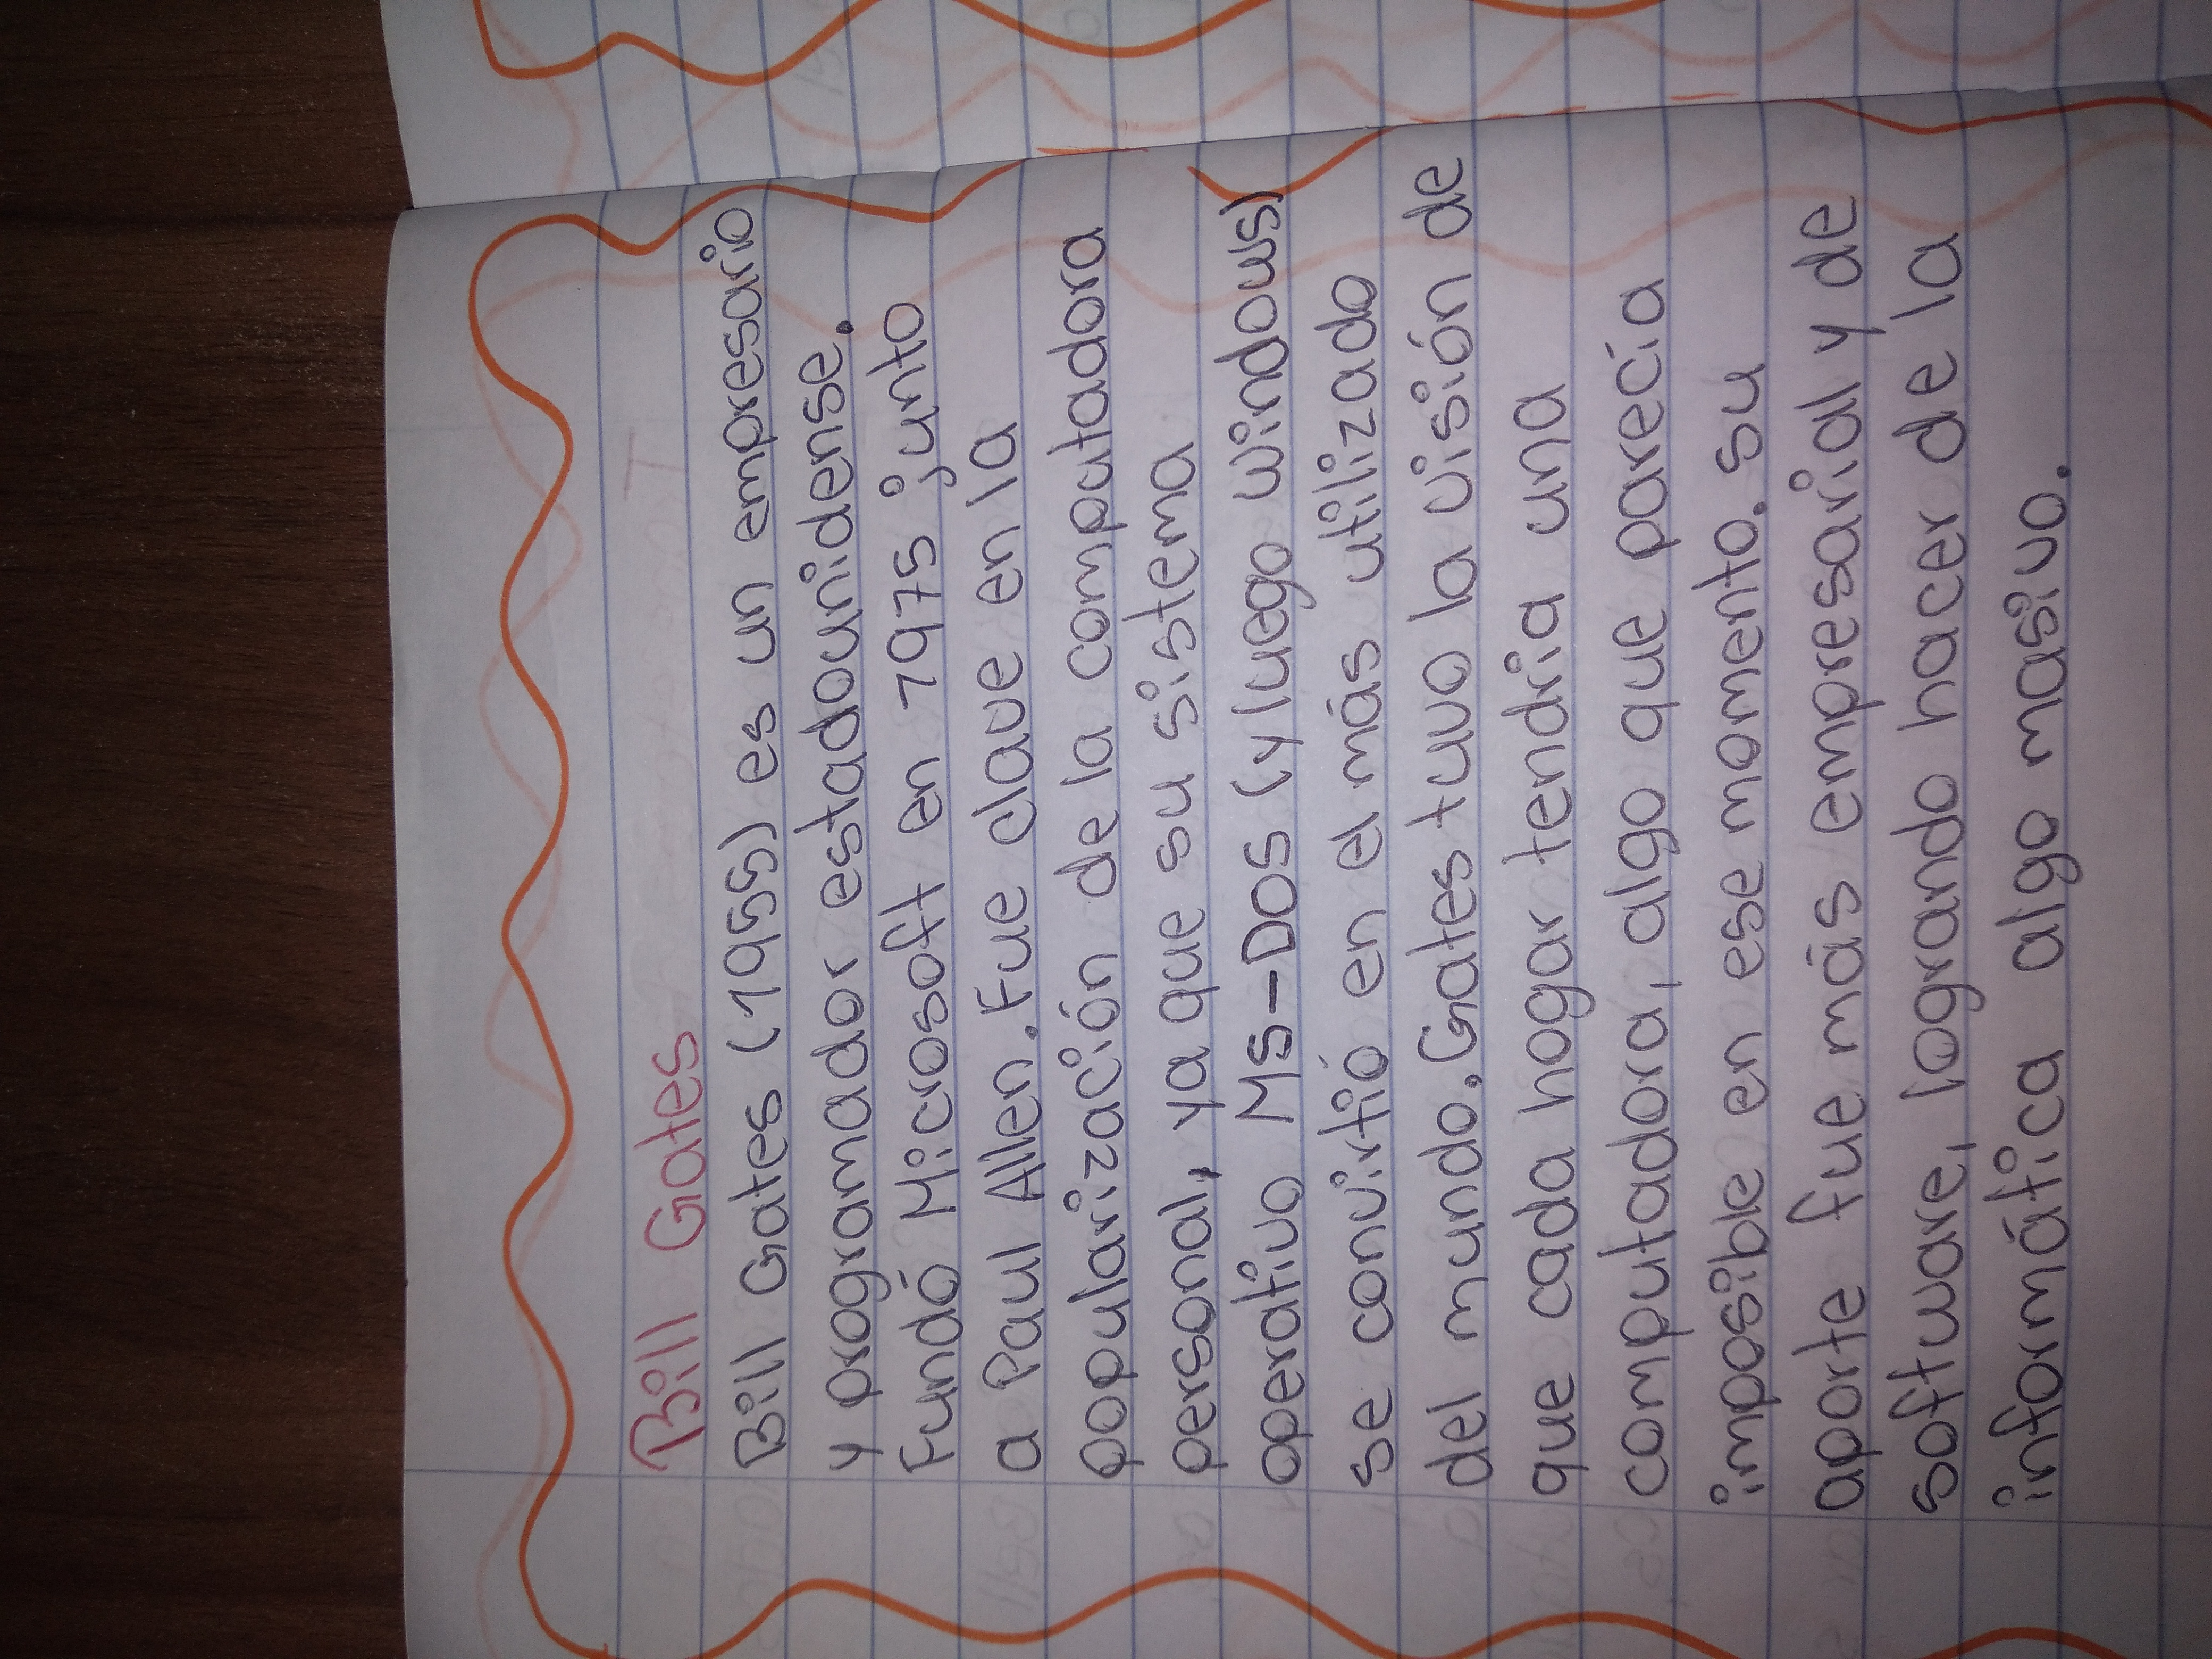 Bill Gates
Bill Gates (1955) es un empresario
y programador estadounidense.
Fundó Microsoft en 1975 junto
a Paul Allen. Fue clave en la
popularización de la computadora
personal, ya que su sistema
operativo MS-DOS (y luego windows)
se convirtió en el más utilizado
del mundo. Gates tuvo la visión de
que cada hogar tendria una
computadora, algo que parecía
imposible en ese momento. su
aporte fue más empresarial y de
software, logrando hacer de la
informática algo masivo.